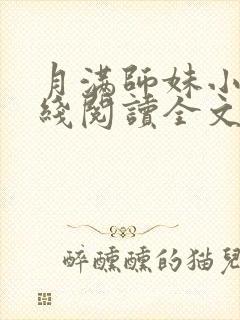 月满師妹小
綫閱讀全文
醉醺醺的猫兒